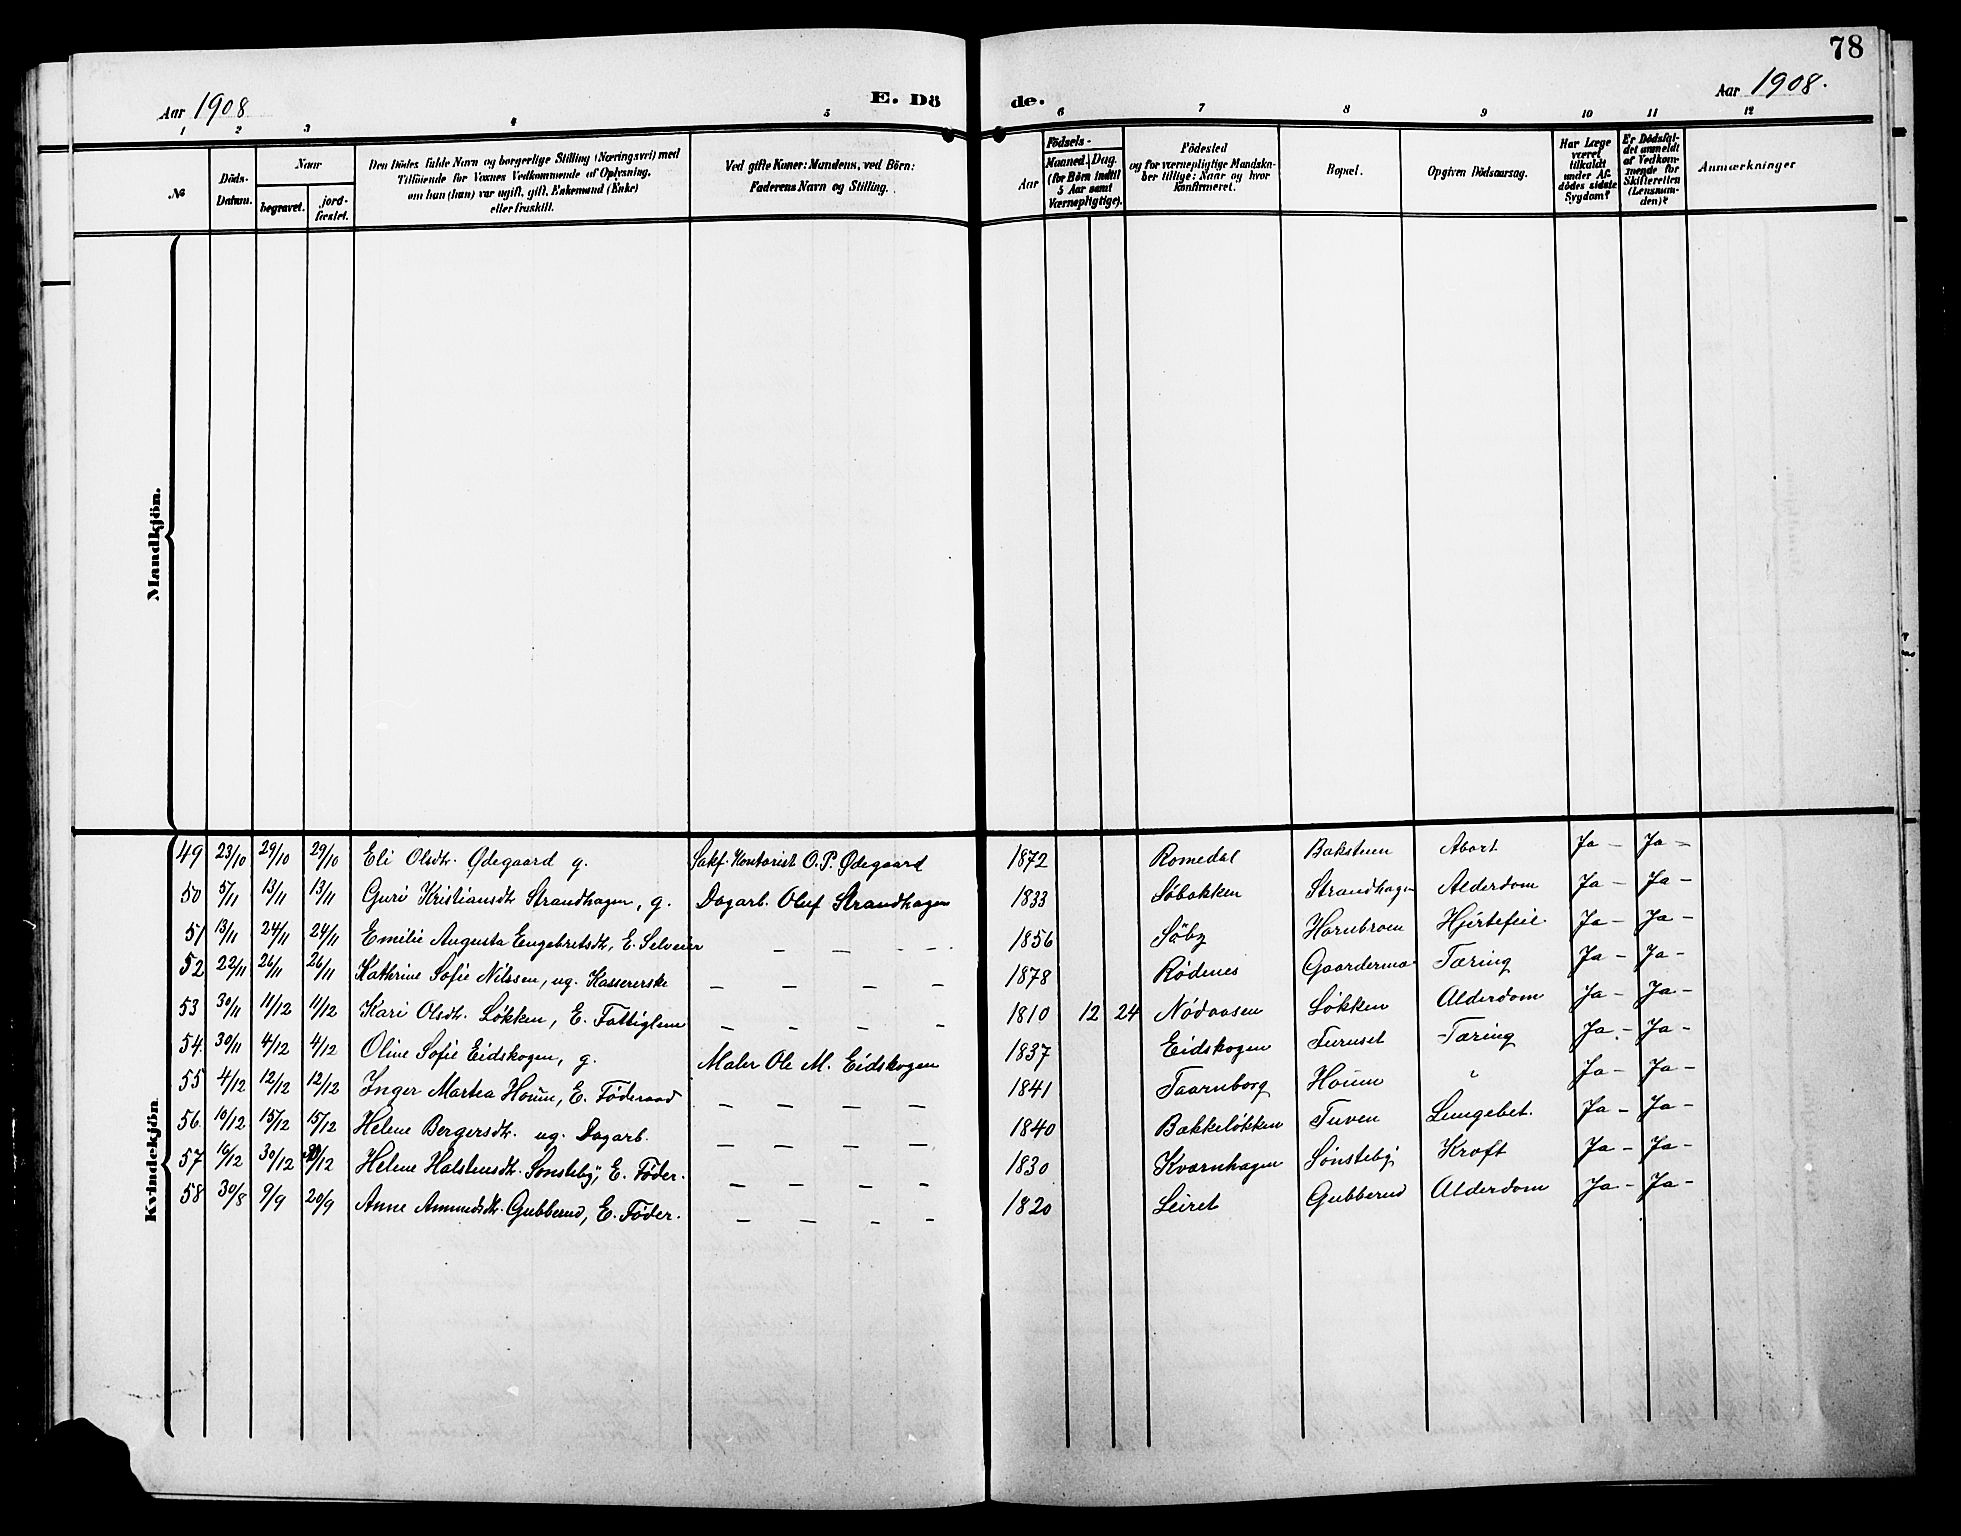 78
Aar 1908
E. Dö
de.
Aar 1908.
1 2 3 4 5 6 7 8 9 10 11 12
№
Döds-
Datum.
Naar
begravet.
jord-
fæstet.
Den Dödes fulde Navn og borgerlige Stilling (Næringsvei) med
Tilföiende for Voxnes Vedkommende af Oplysning,
om han (hun) var ugift, gift, Enkemand (Enke)
eller fraskilt.
Ved gifte Koner: Mandens, ved Börn:
Faderens Navn og Stilling.
Födsels-
Aar
Maaned. Dag.
(for Börn indtil
5 Aar samt
Værnepligtige).
Födested
og for værnepligtige Mandska-
ber tillige: Naar og hvor
konfirmeret.
Bopæl.
Opgiven Dödsaarsag.
Har Læge
været
tilkaldt
under Af-
dödes sidste
Sygdom?
Er Dödsfal-
det anmeldt
af Vedkom-
mende for
Skifteretten
(Lensman-
den)?
Anmærkninger
Mandkjön.
Kvindekjön
49 23/10 29/10 29/10 Eli Olsdtr. Ødegaard g. Sakf. Kontorist O.P. Ødegaard 1872 Romedal Bakstuen Abort Ja – Ja –
50 5/11 13/11 13/11 Guri Kristiansdtr Strandhagen, g. Dagarb. Oluf Strandhagen 1833 Søbakken Strandhagen Alderdom Ja – Ja –
51 13/11 24/11 24/11 Emilie Augusta Engebretsdtr, E. Selveier – – – – 1856 Søby Hornbroen Hjertefeil Ja – Ja –
52 22/11 26/11 26/11 Kathrine Sofie Nilssen, ug. Kassererske – – – – 1878 Rødenes Gaardermo Tæring Ja – Ja –
53 30/11 11/12 11/12 Kari Olsdtr. Løkken, E. Fattiglem – – – – 1810 12 24 Nødaasen Løkken Alderdom Ja – Ja –
54 30/11 4/12 4/12 Oline Sofie Eidskogen, g. Maler Ole M. Eidskogen 1837 Eidskogen Furuset Tæring Ja – Ja –
55 4/12 12/12 12/12 Inger Martea Houm, E. Føderaad – – – – 1841 Taarnborg Houm " Ja – Ja –
56 10/12 15/12 15/12 Helene Bergersdtr. ug. Dagarb. – – – – 1840 Bakkeløkken Tuven Lungebet. Ja – Ja –
57 16/12 30/12 30/12 Helene Halstensdtr. Sønsteby, E. Føder. – – – – 1830 Kvarnhagen Sønsteby Kræft Ja – Ja –
58 30/8 9/9 20/9 Anne Ammundsdtr. Gubberud, E. Føder. – – – – 1820 Leiret Gubberud Alderdom Ja – Ja –